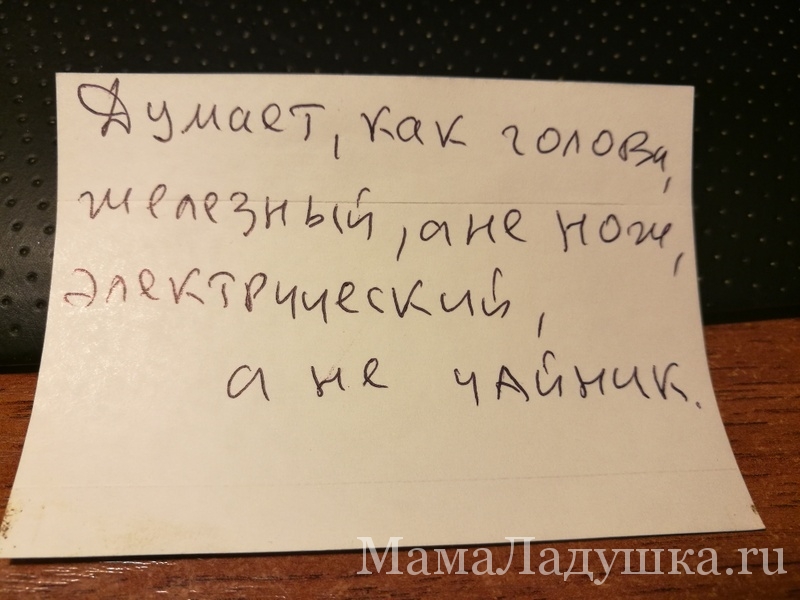 Думает, как голова,
железный, а не нож,
электрический,
а не чайник.
МамаЛадушка.ru